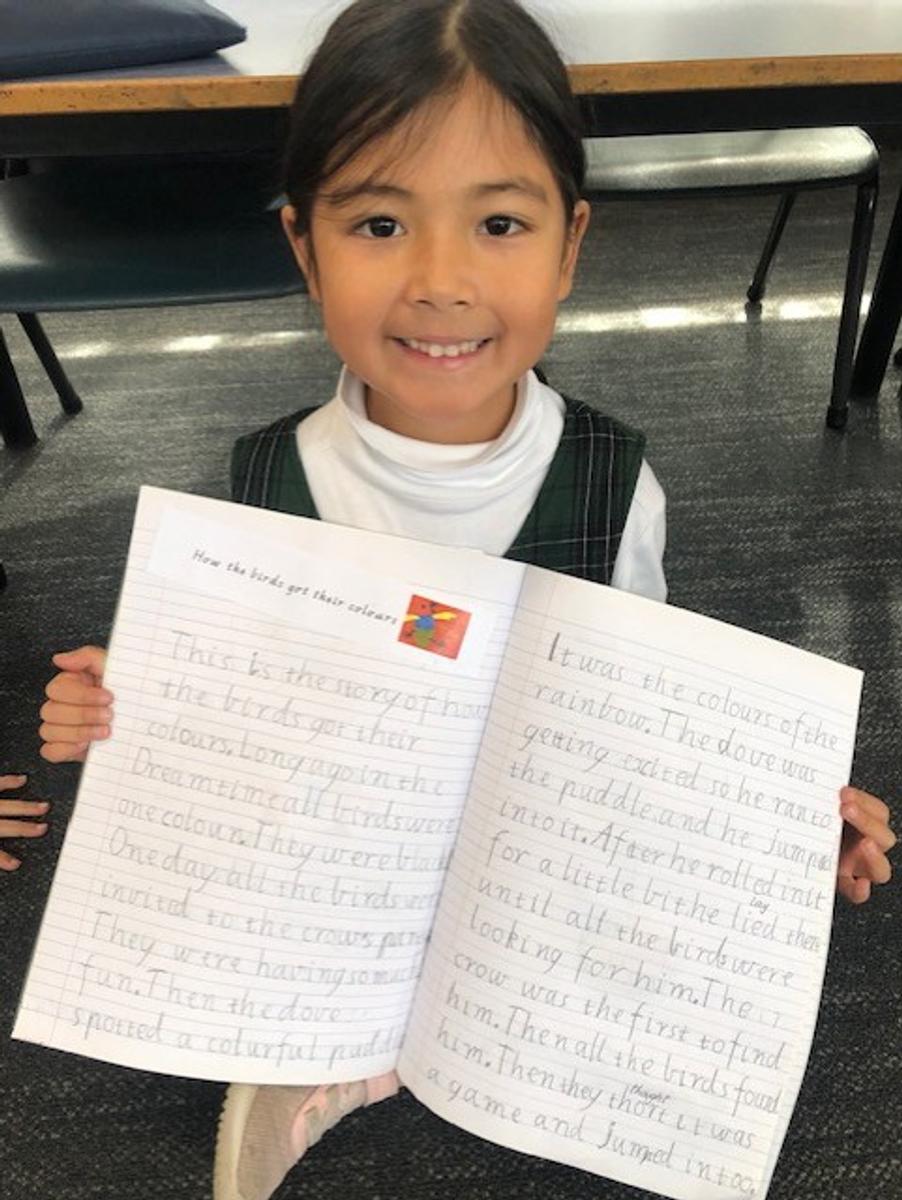 How the birds got their colours
This is the story of how
the birds got their
colours. Long ago in the
Dreamtime all birds were
one colour. They were black
One day all the birds were
invited to the crows party
They were having so much
fun. Then the dove
spotted a colurful puddle
It was the colours of the
rainbow. The dove was
getting excited so he ran to
the puddle. and he jumped
into it. After he rolled in it
lay
for a little bit he lied there
until all the birds were
looking for him. The
crow was the first to find
him. Then all the birds found
thought
him. Then they thort it was
a game and jumped in too.